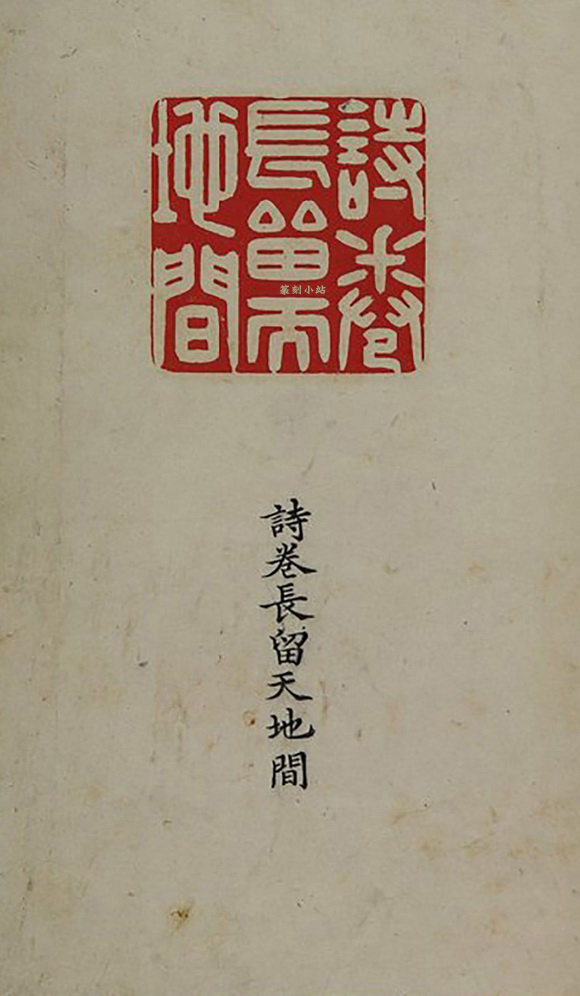 詩卷
長留天
地間
篆刻小站
詩卷長留天地間